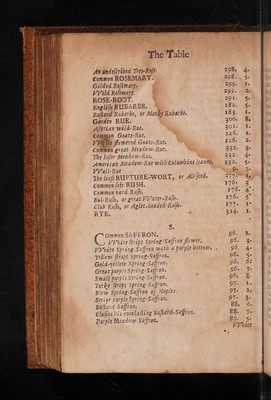 The Table
An undescribed Tree-Rose 298. 4.
Common ROSEMARY. 298. 5.
Gilded Rosemary. 299. 1.
VVild Rosemary. 299. 2.
ROSE-ROOT. 291. 5.
English RUBARBE. 182. 5.
Bastard Rubarbe, or Monks Rubarbe. 183. 1.
Garden RUE. 300. 8.
Assyrian wild-Rue. 301. 1.
Common Goats-Rue. 126. 1.
VVhite flowered Goats-Rue. 126. 2.
Common great Meadow-Rue. 332. 3.
The lesser Meadow-Rue. 332. 4.
American Meadow-Rue with Columbine leaves. 332. 5.
VVall-Rue 9.
The least RUPTURE-WORT, or All-seed. 277.
Common soft RUSH. 176. 3
Common hard Rush. 176. 4.
Bul-Rush, or great VVater-Rush. 176. 5.
Club Rush, or Aglet-headed-Rush. 177. 1.
RYE. 314. 1.
S.
Common SAFFRON. 96. 2.
VVhite stript Spring-Saffron flower. 96. 3.
VVhite Spring-Saffron with a purple bottom. 96. 4.
Yellow stript Spring-Saffron. 96. 5.
Gold-yellow Spring-Saffron. 96. 6.
Great purple Spring-Saffron. 96. 7.
Small purple Spring-Saffron. 96. 8.
Turky stript Spring-Saffron. 97. 1.
Blew Spring-Saffron of Naples. 97. 2.
Stript purple Spring-Saffron. 97. 3.
Bastard Saffron. 88. 6.
Clusius his everlasting Bastard-Saffron. 88. 7.
Purple Meadow Saffron. 86. 5.
VVhite